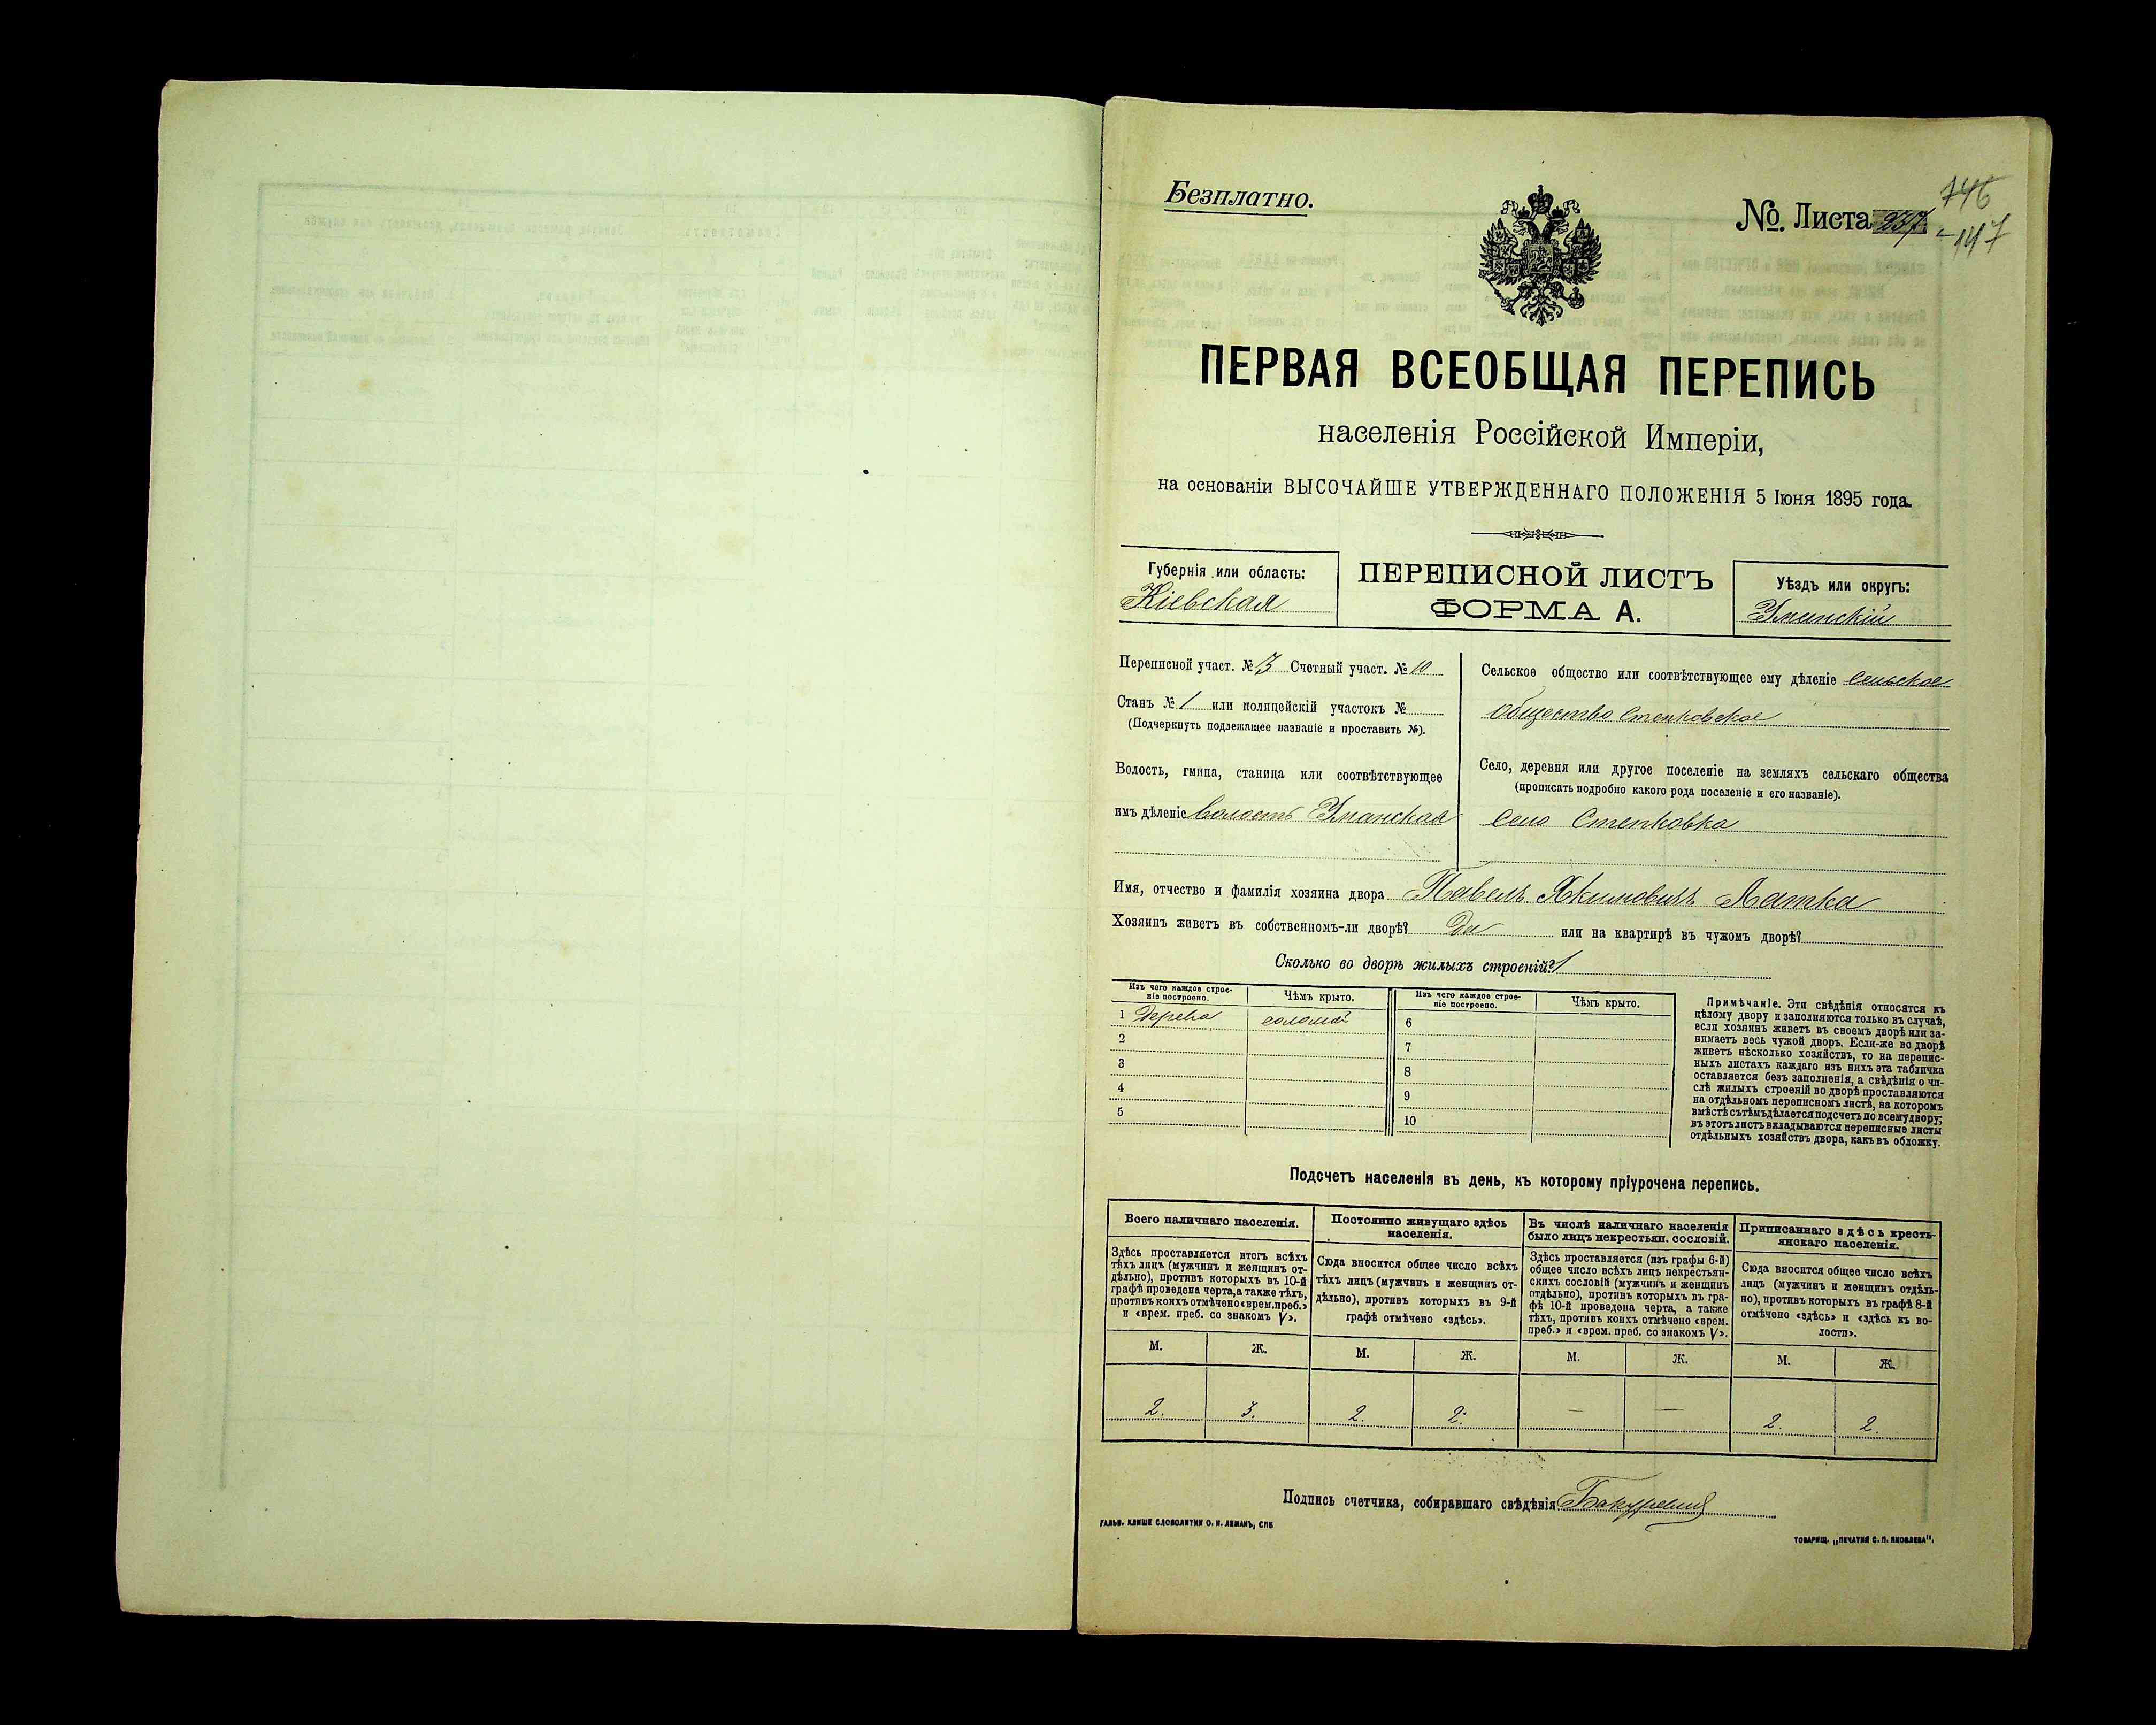 Безплатно.
№. Листа 237
746
-747
ПЕРВАЯ ВСЕОБЩАЯ ПЕРЕПИСЬ
населенія Россійской Имперіи,
на основаніи ВЫСОЧАЙШЕ УТВЕРЖДЕННАГО ПОЛОЖЕНІЯ 5 Іюня 1895 года.
Губернія или область:
Кіевская
ПЕРЕПИСНОЙ ЛИСТЪ
ФОРМА А.
Уѣздъ или округъ:
Уманскій
Переписной участ. № 3 Счетный участ. № 10
Станъ № 1 или полицейскій участокъ №
(Подчеркнуть подлежащее названіе и проставить №).
Волость, гмина, станица или соотвѣтствующее
имъ дѣленіе волость Уманская
Сельское общество или соотвѣтствующее ему дѣленіе сельское
общество Степковское
Село, деревня или другое поселеніе на земляхъ сельскаго общества
(прописать подробно какого рода поселеніе и его названіе).
село Степковка
Имя, отчество и фамилія хозяина двора Павелъ Якимовичъ Латка
Хозяинъ живетъ въ собственномъ-ли дворѣ? Да или на квартирѣ въ чужомъ дворѣ?
Сколько во дворѣ жилыхъ строеній? 1
Изъ чего каждое строе-
ніе построено.
Чѣмъ крыто.
Изъ чего каждое строе-
ніе построено.
Чѣмъ крыто.
1 Дерева соломой 6
2 7
3 8
4 9
5 10
Примѣчаніе. Эти свѣдѣнія относятся къ
цѣлому двору и заполняются только въ случаѣ,
если хозяинъ живетъ въ своемъ дворѣ или за-
нимаетъ весь чужой дворъ. Если-же во дворѣ
живетъ нѣсколько хозяйствъ, то на перепис-
ныхъ листахъ каждаго изъ нихъ эта табличка
оставляется безъ заполненія, а свѣдѣнія о чи-
слѣ жилыхъ строеній во дворѣ проставляются
на отдѣльномъ переписномъ листѣ, на которомъ
вмѣстѣ съ тѣмъ дѣлается подсчетъ по всему двору;
въ этотъ листъ вкладываются переписные листы
отдѣльныхъ хозяйствъ двора, какъ въ обложку.
Подсчетъ населенія въ день, къ которому пріурочена перепись.
Всего наличнаго населенія.
Здѣсь проставляется итогъ всѣхъ
тѣхъ лицъ (мужчинъ и женщинъ от-
дѣльно), противъ которыхъ въ 10-й
графѣ проведена черта, а также тѣхъ,
противъ коихъ отмѣчено «врем. преб.»
и «врем. преб. со знакомъ V».
Постоянно живущаго здѣсь
населенія.
Сюда вносится общее число всѣхъ
тѣхъ лицъ (мужчинъ и женщинъ от-
дѣльно), противъ которыхъ въ 9-й
графѣ отмѣчено «здѣсь».
Въ числѣ наличнаго населенія
было лицъ некрестьян. сословій.
Здѣсь проставляется (изъ графы 6-й)
общее число всѣхъ лицъ некрестьян-
скихъ сословій (мужчинъ и женщинъ
отдѣльно), противъ которыхъ въ гра-
фѣ 10-й проведена черта, а также
тѣхъ, противъ коихъ отмѣчено «врем.
преб.» и «врем. преб. со знакомъ V».
Приписаннаго здѣсь кресть-
янскаго населенія.
Сюда вносится общее число всѣхъ
лицъ (мужчинъ и женщинъ отдѣль-
но), противъ которыхъ въ графѣ 8-й
отмѣчено «здѣсь» и «здѣсь къ во-
лости».
М. Ж. М. Ж. М. Ж. М. Ж.
2. 3. 2. 2. — — 2. 2.
Подпись счетчика, собиравшаго свѣдѣнія
ГАЛЬВ. КЛИШЕ СЛОВОЛИТНИ О. И. ЛЕМАНЪ, СПБ
ТОВАРИЩ. „ПЕЧАТНЯ С. П. ЯКОВЛЕВА".